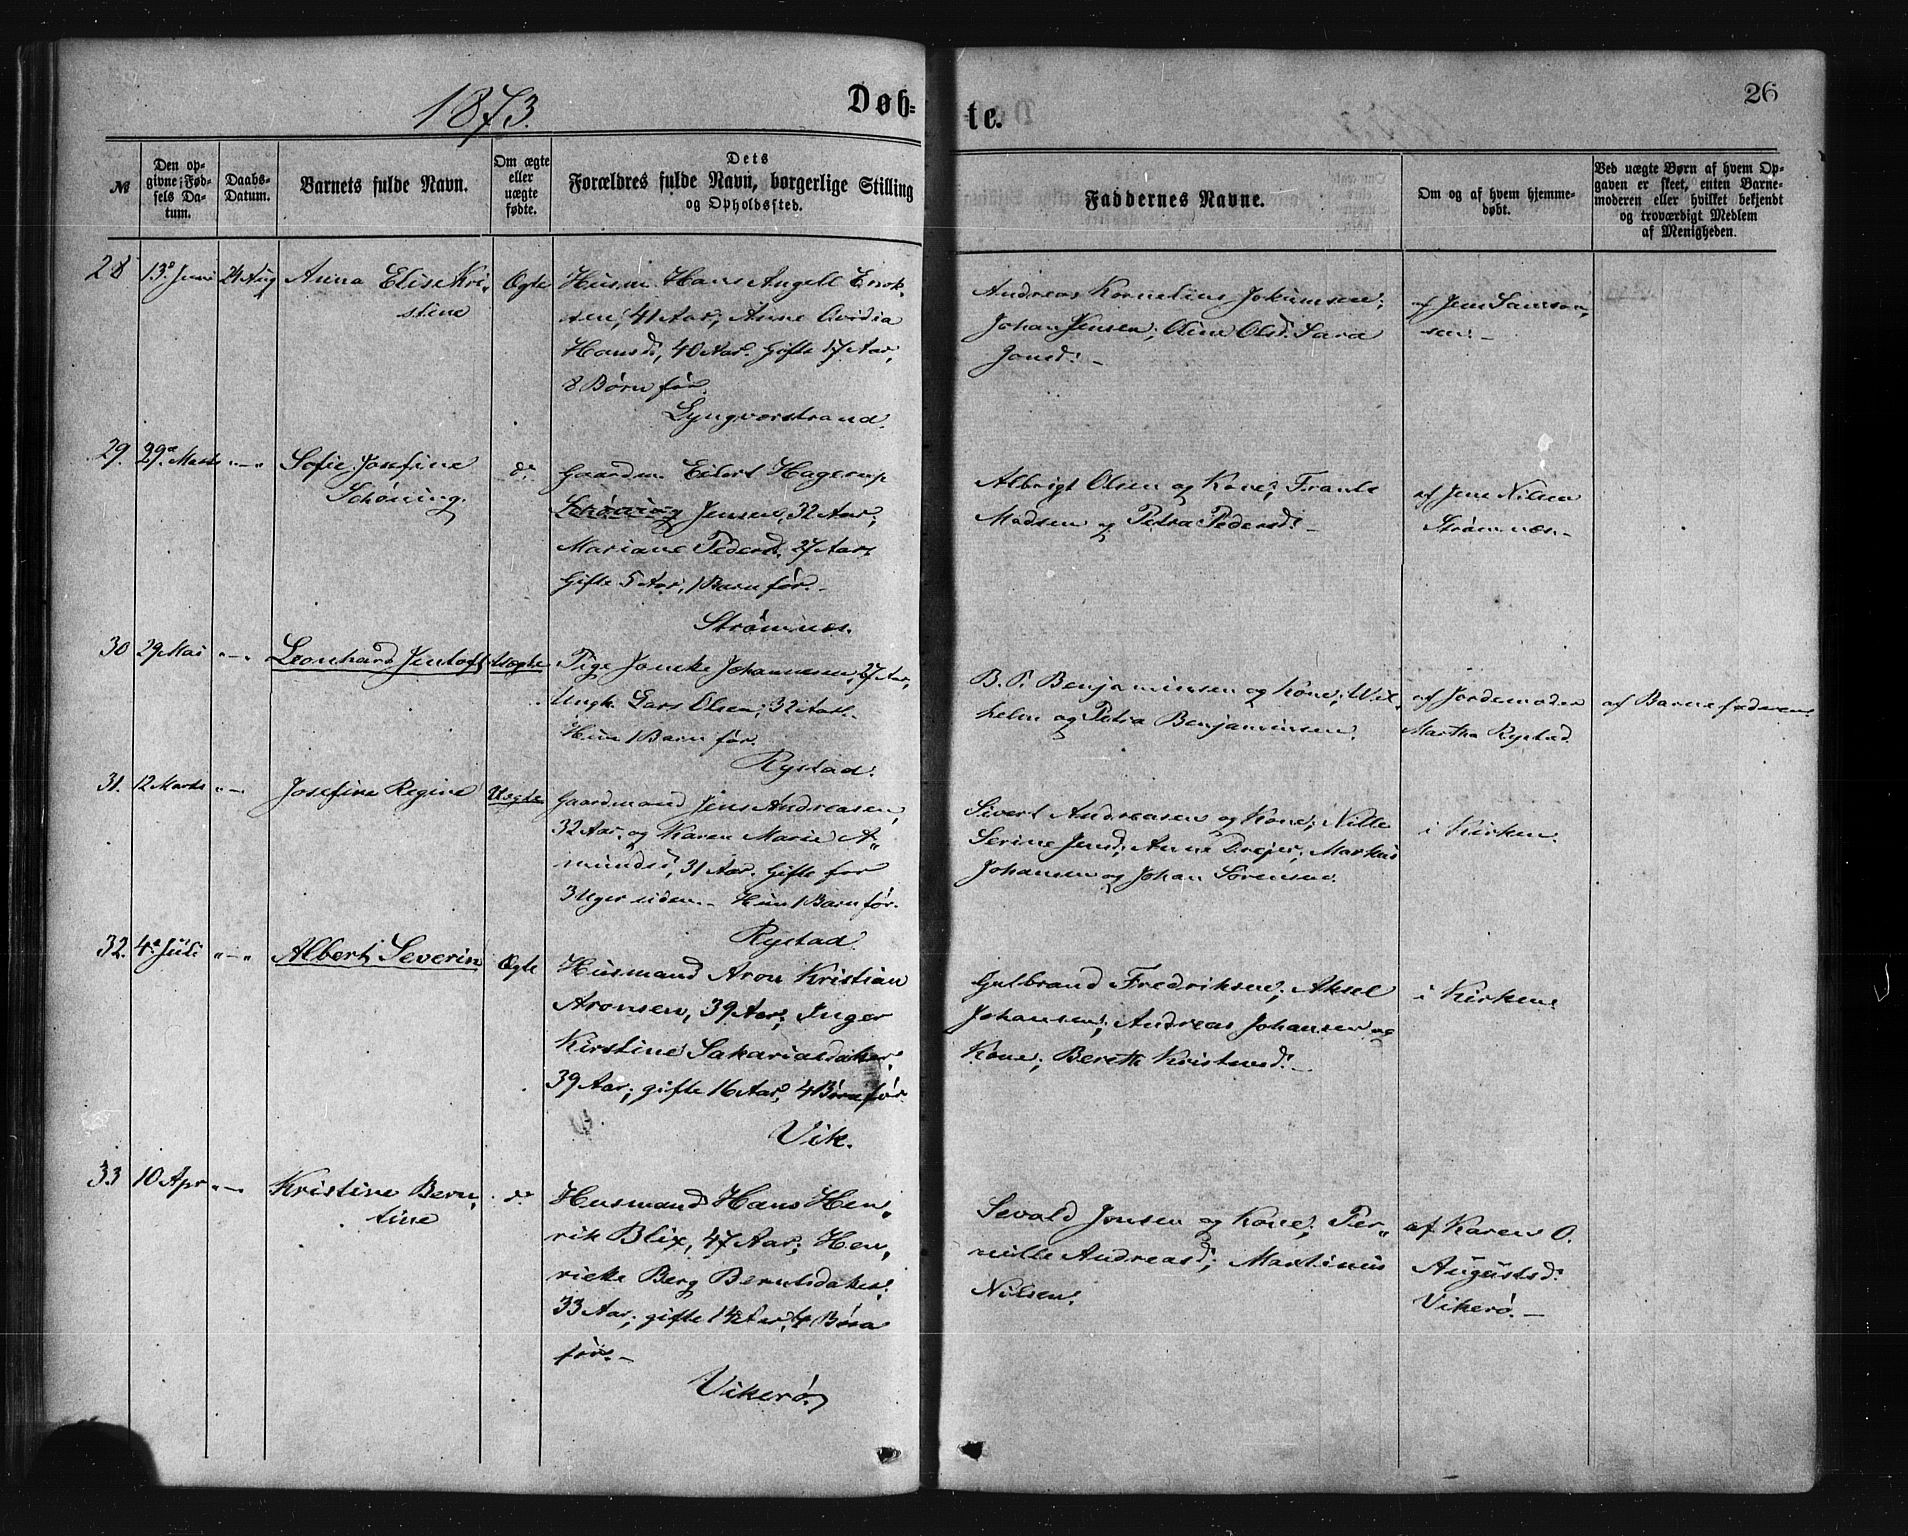 1873.
Døb-
te.
26
№
Den op-
givne Fød-
sels Da-
tum.
Daabs-
Datum.
Barnets fulde Navn.
Om ægte
eller
uægte
fødte.
Dets
Forældres fulde Navn, borgerlige Stilling
og Opholdssted.
Faddernes Navne.
Om og af hvem hjemme-
døbt.
Ved uægte Børn af hvem Op-
gaven er skeet, enten Barne-
moderen eller hvilket bekjendt
og troværdigt Medlem
af Menigheden.
28
13de Juni
24 Aug
Anna Elise Kri-
stine
Ægte
Husm. Hans Angell Erik-
sen, 41 Aar; Anne Ovidia
Hansd., 40 Aar. Gifte 17 Aar,
8 Børn før.
Lyngvorstrand.
Andreas Kornelius Jokumsen;
Johan Jensen; Oline Olsd. Sara
Jonsd. –
af Jens Samson-
sen. –
29.
29de Marts
" – "
Sofie Josefine
Schøning.
do
Gaardm. Eilert Hagerup
Schøning Jensen, 32 Aar;
Mariane Pedersd. 27 Aar.
Gifte 5 Aar, 1 Barn før. –
Strømnes.
Albrigt Olsen og Kone; Frants
Madsen og Petra Pedersd. –
af Jens Nilsen
Strømnes. –
30
29 Mai
" – "
Leonhard Jentoft
Uægte
Pige Johannesen, 27 Aar,
Ungk. Lars Olsen; 32 Aar. –
Hun 1 Barn før.
Rystad.
B. P. Benjaminsen og Kone; Wil-
helm og Petra Benjaminsen.
af Jordemoder
Martha Rystad.
af Barnefaderen.
31.
12 Marts
" – "
Josefine Regine
Uægte
Gaardmand Jens Andreasen,
32 Aar, og Karen Marie A-
mundsd., 31 Aar. Gifte for
3 Uger siden. – Hun 1 Barn før.
Rystad
Sivert Andreasen og Kone; Nille
Serine Jensd; Anne Drejer; Markus
Johansen og Johan Sørensen.
i Kirken.
32.
4de Juli
" – "
Albert Severin
Ægte
Husmand Aron Kristian
Aronsen, 39 Aar; Inger
Kirstine Sakariasdatter
39 Aar; gifte 16 Aar, 4 Børn før.
Vik.
Gulbrand Fredriksen; Aksel
Johansen; Andreas Johansen og
Kone; Berith Kristensd. –
i Kirken.
33
10 Apr
" – "
Kristine Bern-
tine
do
Husmand Hans Hen-
rik Blix, 47 Aar; Hen-
rieke Berg Berntsdatter;
33 Aar; gifte 14 Aar, 4 Børn
før. –
Vikerø.
Sevald Jonsen og Kone; Per-
nille Andreasd; Martinus
Nilsen.
af Karen O.
Augustsd.
Vikerø. –